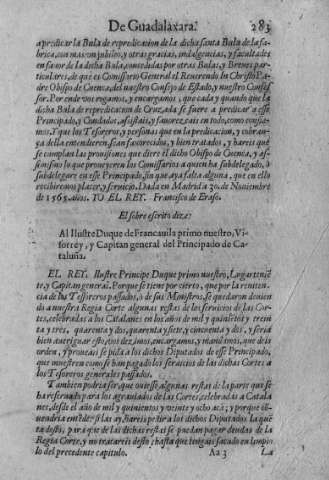 De Guadalaxara. 283
a predicar la Bula de repredicacion de dicha santa Bula de la fa-
brica, con mas on jubileo, y otras gracias, indulgencias, y facultades
en favor de la dicha Bula, concedidas por otras Bulas, y Breues par-
ticulares, de que es Comissario General el Reuerendo In Christo Pa-
dre Obispo de Cuenca, del nuestro Consejo de Estado, y nuestro Confes-
sor. Por ende vos rogamos, y encargamos, que cada y quando que la
dicha Bula de repredicacion de Cruzada se fuere a predicar a esse
Principado, y Condados, assistais, y fauorezcais en todo, como confia-
mos. Y que los Tesoreros, y personas que en la predicacion, y cobran-
ça della entendieren, sean fauorecidos, y bien tratados, y hareis que
se cumplan las prouisiones que diere el dicho Obispo de Cuenca, y as-
si mismo lo que proueyeren los Comissarios a quien ha subdelegado, ò
subdelegare en esse Principado, sin que aya falta alguna, que en ello
recibiremos placer, y seruicio. Dada en Madrid a 20. de Nouiembre
de 1565. años. YO EL REY. Francisco de Eraso.
El sobre escrito dize:
Al Ilustre Duque de Francauila primo nuestro, Vi-
sorrey, y Capitan general del Principado de Ca-
taluña.
EL REY. Ilustre Principe Duque primo nuestro, Lugartinien-
te, y Capitan general. Porque se tiene por cierto, que por la reniten-
cia de los Tesoreros passados, ò de sus Ministros, se quedaron deuien-
do a nuestra Regia Corte algunas restas de los seruicios de las Cor-
tes, celebradas a los Catalanes en los años de mil y quinientos y trein-
ta y tres, quarenta y dos, quarenta y siete, y cincuenta y dos, y seria
bien aueriguar esto, vos dezimos, encargamos, y mandamos, que deis
orden, y proueais se pida a los dichos Diputados de esse Principado,
que muestren como se han pagado los seruicios de las dichas Cortes a
los Tesoreros generales passados.
Tambien podria ser, que ouiesse algunas restas de la parte que se
ha reseruado para los agrauiados de las Cortes, celebradas a Catala-
nes, desde el año de mil y quinientos y veinte y ocho acà; y porque
los dichos Diputados la que-
ta desto, para que de las dichas restas se puedan pagar deudas de la
Regia Corte, y no tratareis desto, hasta que tengais sacado en limpio
lo del precedente capitulo. Aa 3 La